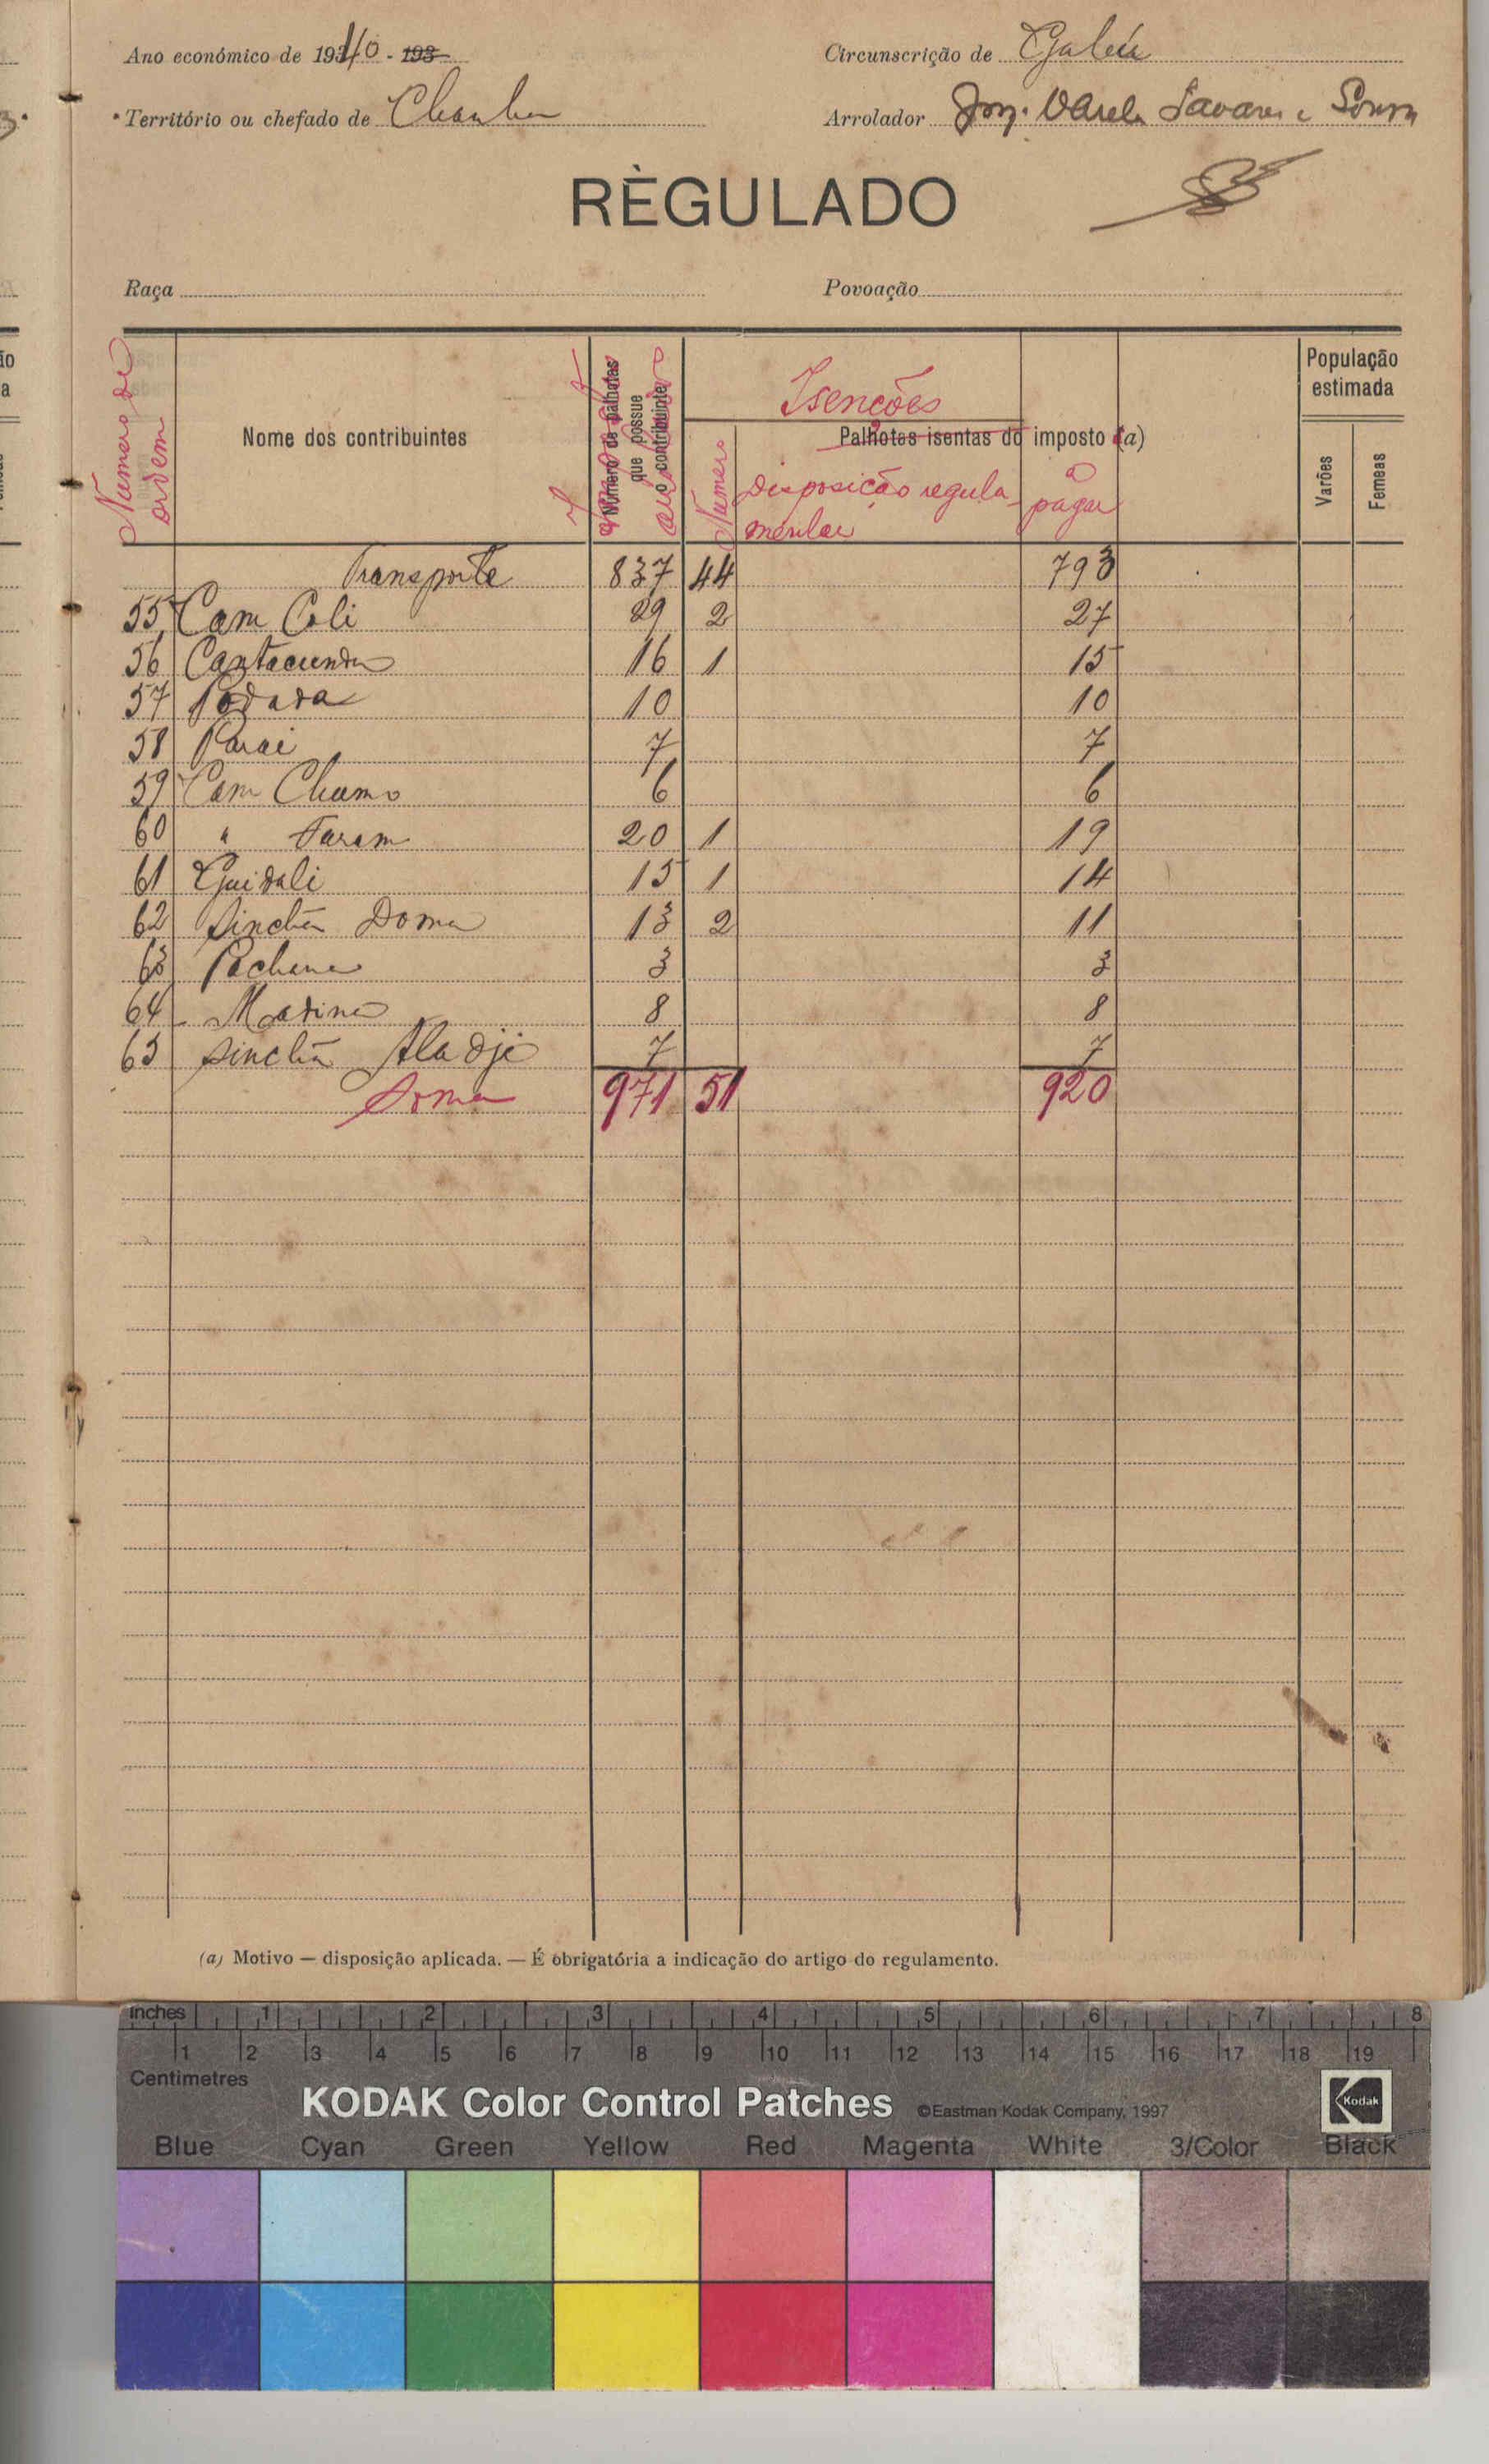 Ano económico de 1940 - 193
Circunscrição de Gabú
Território ou chefado de Chanha
Arrolador Varela Tavares e Sousa
RÈGULADO
Raça
Povoação
Numero de ordem
Nome dos contribuintes
Número de palhotas que possue o contribuinte
Isenções
Palhotas isentas do imposto (a)
Numero
Disposição regulamentar
a pagar
População estimada
Varões
Femeas
Transporte 837 44 793
55 Cam Coli 29 2 27
56 Cantacunda 16 1 15
57 Padada 10 10
58 Parai 7 7
59 Cam Chamo 6 6
60 " Faram 20 1 19
61 Guidali 15 1 14
62 Sinchã Doma 13 2 11
63 Pachana 3 3
64 Madina 8 8
65 Sinchã Aladji 7 7
Soma 971 51 920
(a) Motivo — disposição aplicada. — É obrigatória a indicação do artigo do regulamento.
inches 1 2 3 4 5 6 7 8
1 2 3 4 5 6 7 8 9 10 11 12 13 14 15 16 17 18 19
Centimetres
KODAK Color Control Patches ©Eastman Kodak Company, 1997 Kodak
Blue Cyan Green Yellow Red Magenta White 3/Color Black